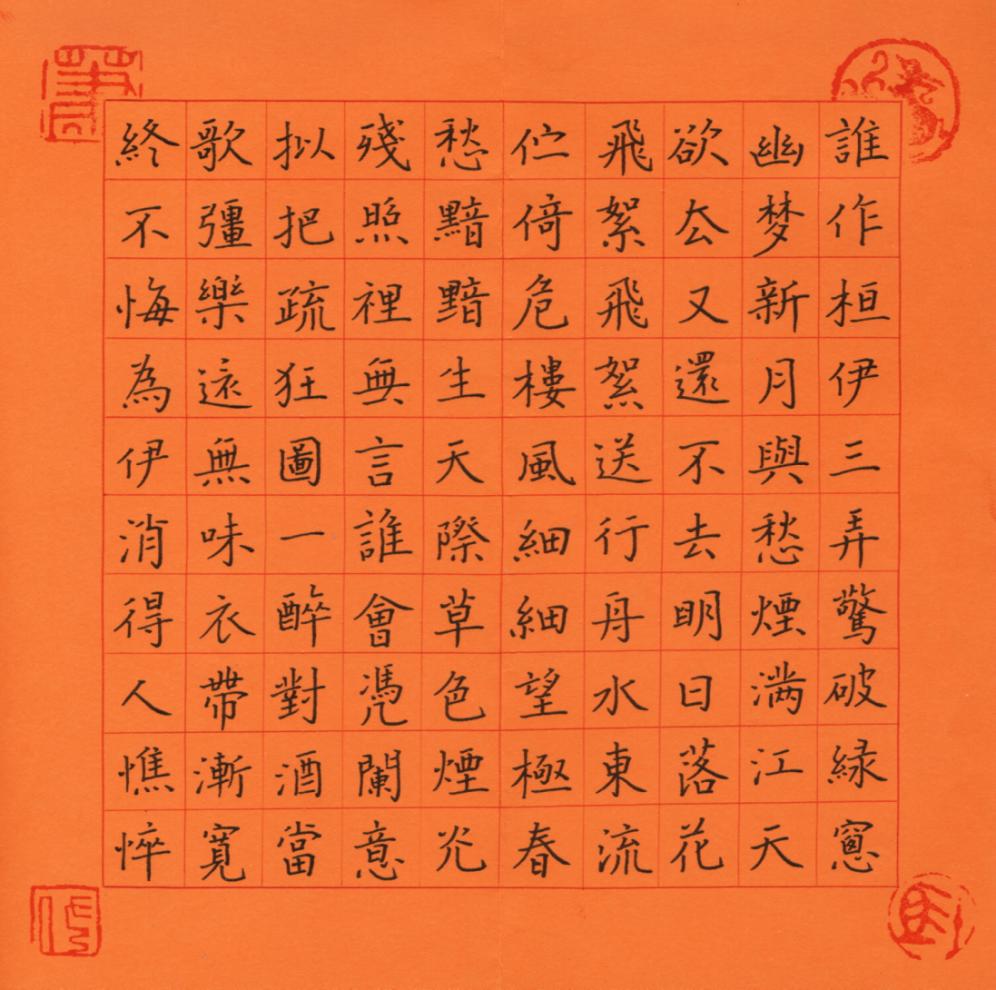 誰作桓伊三弄驚破緑窻
幽梦新月與愁煙満江天
欲厺又還不去明日落花
飛絮飛絮送行舟水東流
伫倚危樓風細細望極春
愁黯黯生天際草色煙光
殘照裡無言誰會凭闌意
拟把疏狂圖一醉對酒當
歌彊樂還無味衣帶漸寬
終不悔為伊消得人憔悴